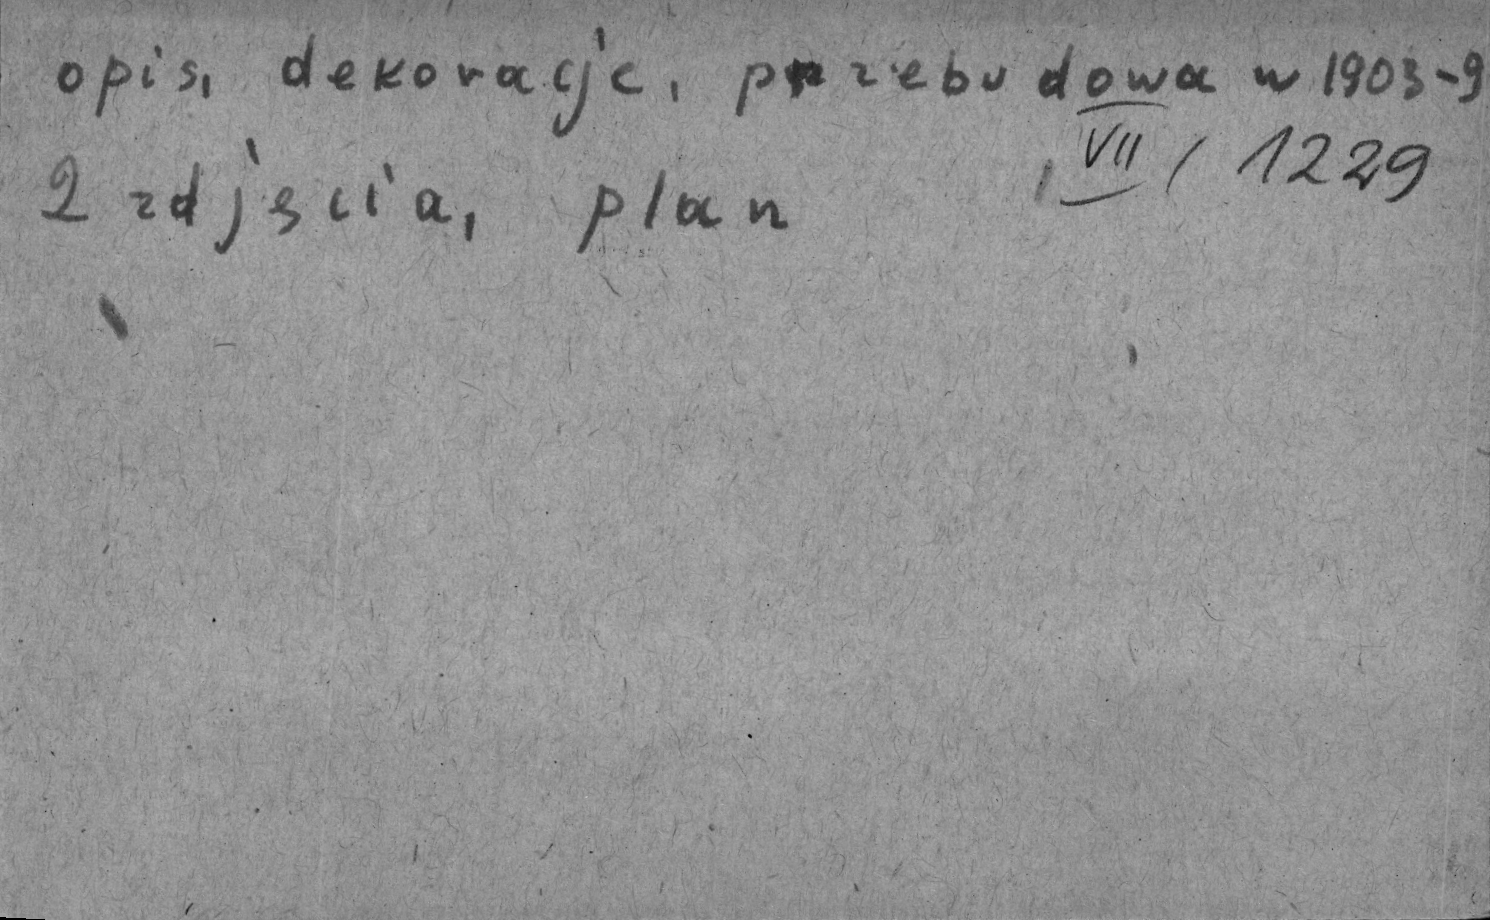 opis, dekoracje, przebudowa w 1903-9
VII / 1229
2 zdjęcia, plan